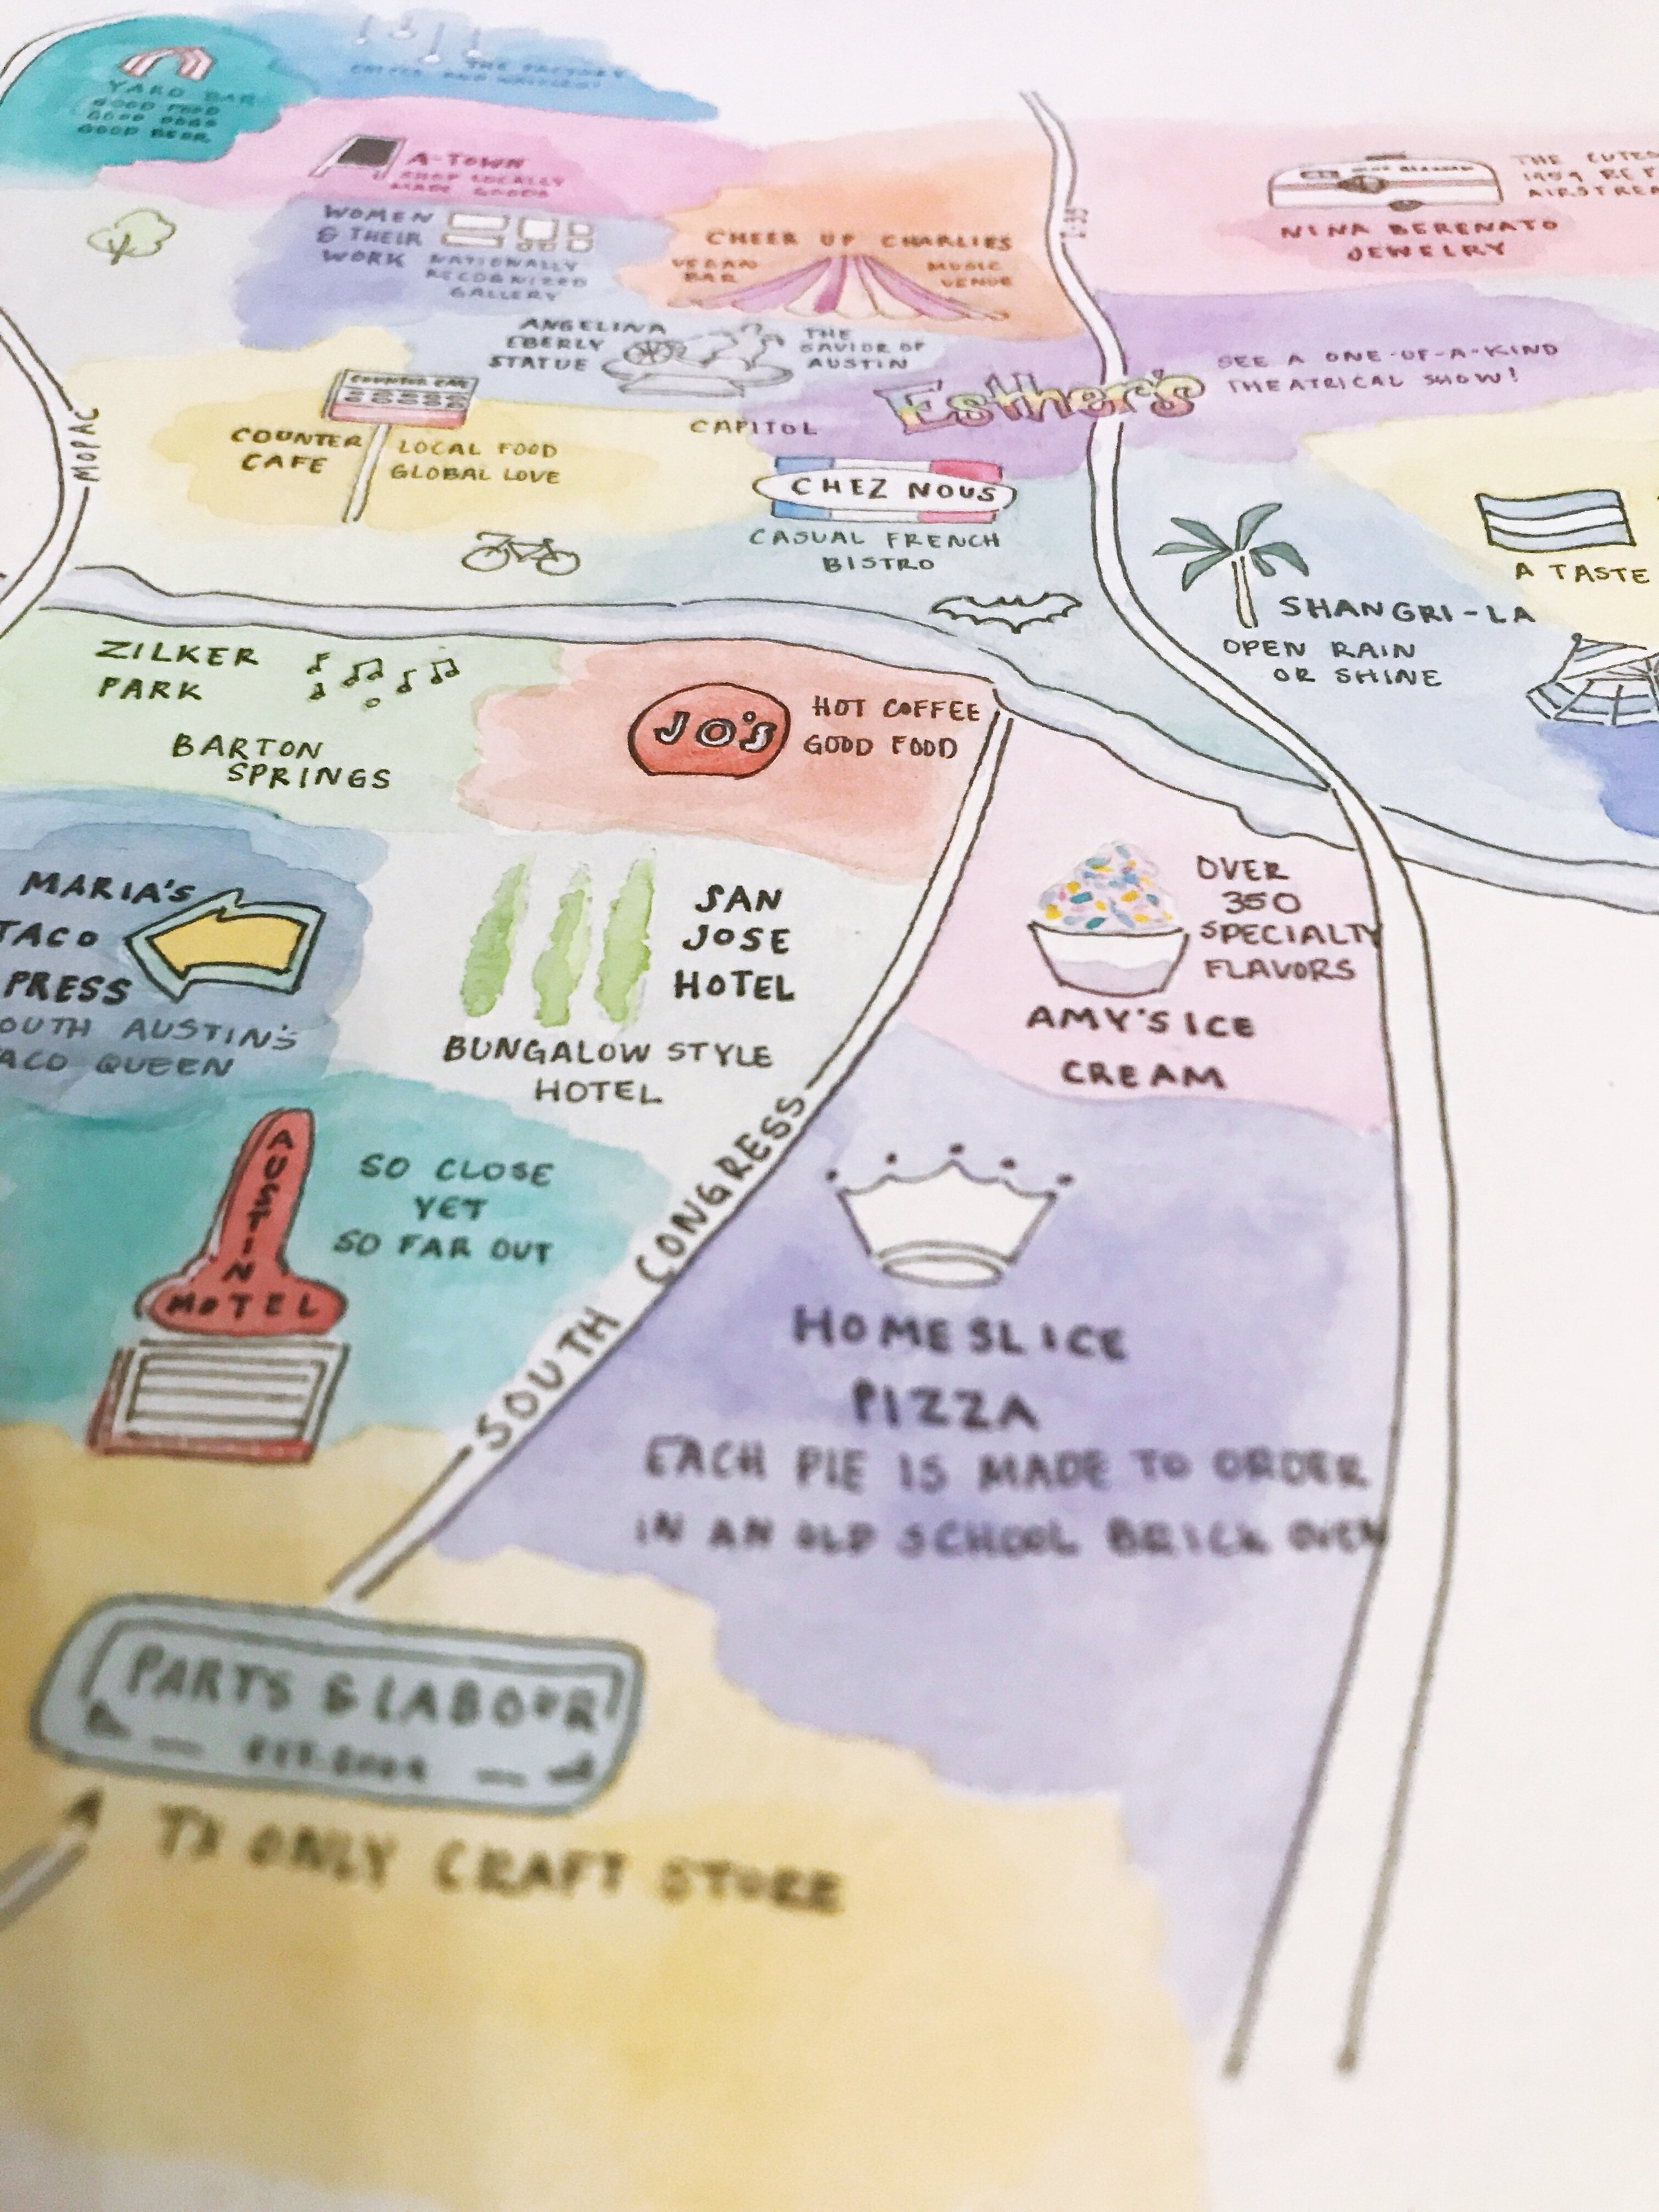 YARD BAR
GOOD FOOD
GOOD DOGS
GOOD BEER
THE FACTORY
COFFEE AND WAFFLES!
A-TOWN
SHOP LOCALLY
MADE GOODS
WOMEN
& THEIR
WORK
NATIONALLY
RECOGNIZED
GALLERY
CHEER UP CHARLIES
VEGAN
BAR
MUSIC
VENUE
I-35
THE
1959
NINA BERENATO
JEWELRY
ANGELINA
EBERLY
STATUE
THE
SAVIOR OF
AUSTIN
Esther's
SEE A ONE-OF-A-KIND
THEATRICAL SHOW!
COUNTER CAFE
COUNTER
CAFE
LOCAL FOOD
GLOBAL LOVE
MOPAC
CAPITOL
CHEZ NOUS
CASUAL FRENCH
BISTRO
A TASTE
SHANGRI-LA
OPEN RAIN
OR SHINE
ZILKER
PARK
BARTON
SPRINGS
JO'S
HOT COFFEE
GOOD FOOD
MARIA'S
TACO
PRESS
OUTH AUSTIN'S
ACO QUEEN
SAN
JOSE
HOTEL
BUNGALOW STYLE
HOTEL
OVER
350
SPECIALTY
FLAVORS
AMY'S ICE
CREAM
AUSTIN
MOTEL
SO CLOSE
YET
SO FAR OUT
SOUTH CONGRESS
HOMESLICE
PIZZA
EACH PIE IS MADE TO ORDER
IN AN OLD SCHOOL BRICK OVEN
PARTS & LABOUR
TX ONLY CRAFT STORE